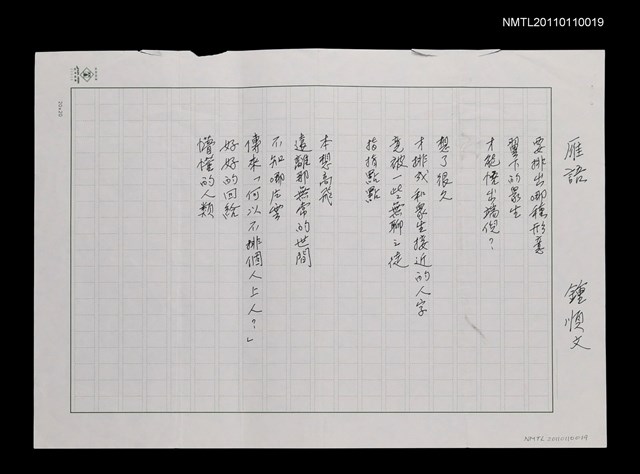 NMTL20110110019
雁語
鍾順文
要排出哪種形意
翼下的眾生
才能悟出端倪？
想了很久
才排成和眾生接近的人字
竟被一些無聊之徒
指指點點
本想高飛
遠離那無常的世間
不知哪片雲
傳來「何以不排個人上人？」
好好的回給
懵懂的人類
20x20
NMTL 20110110019